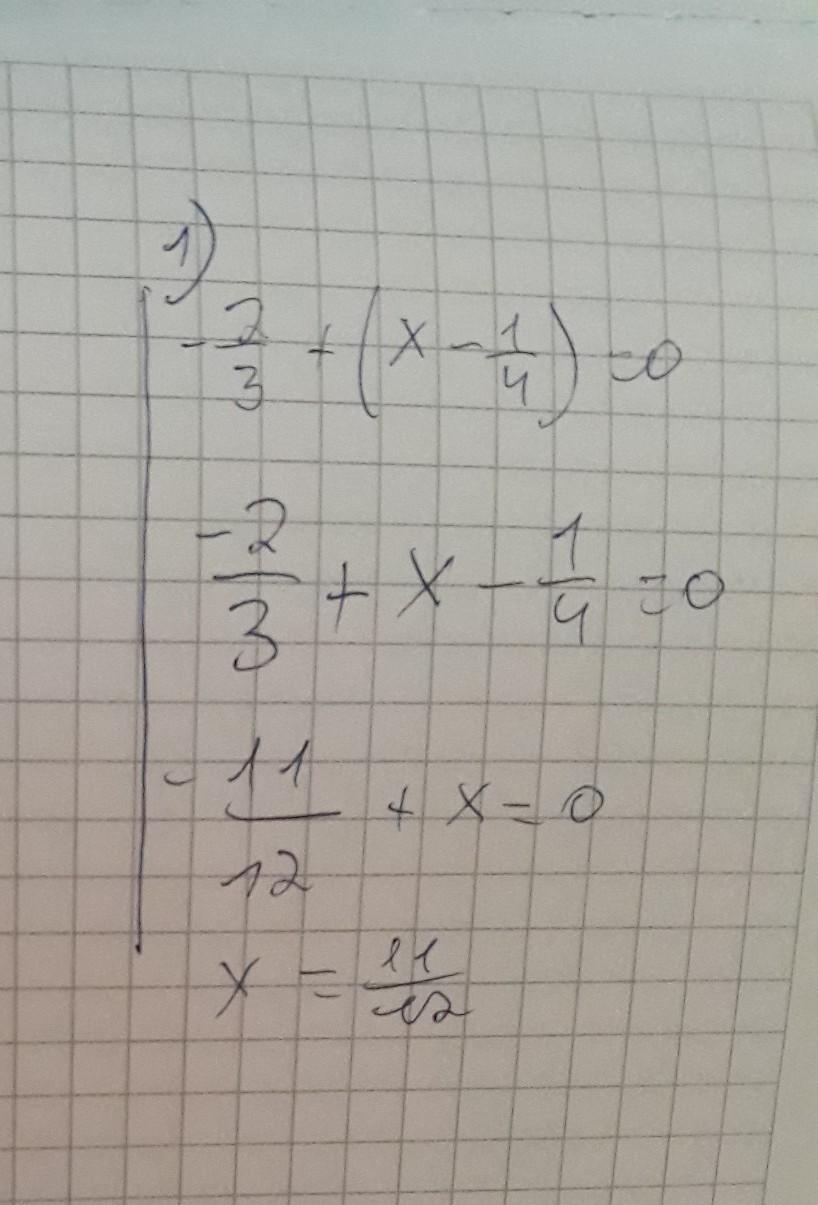 1)
-2/3 + (x - 1/4) = 0
-2/3 + x - 1/4 = 0
-11/12 + x = 0
x = 11/12